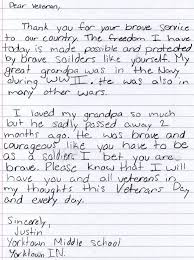 Dear Veteran,
Thank you for your brave service
to our country. The freedom I have
today is made possible and protected
by brave soilders like yourself. My
great grandpa was in the Navy
during WW II. He was also in
many other wars.
I loved my grandpa so much
but he sadly passed away 2
months ago. He was brave and
courageous like you have to be
as a soldier. I bet you are
brave. Please know that I will
have you and all veterans in
my thoughts this Veterans Day
and every day.
Sincerely,
Justin
Yorktown Middle school
Yorktown IN.